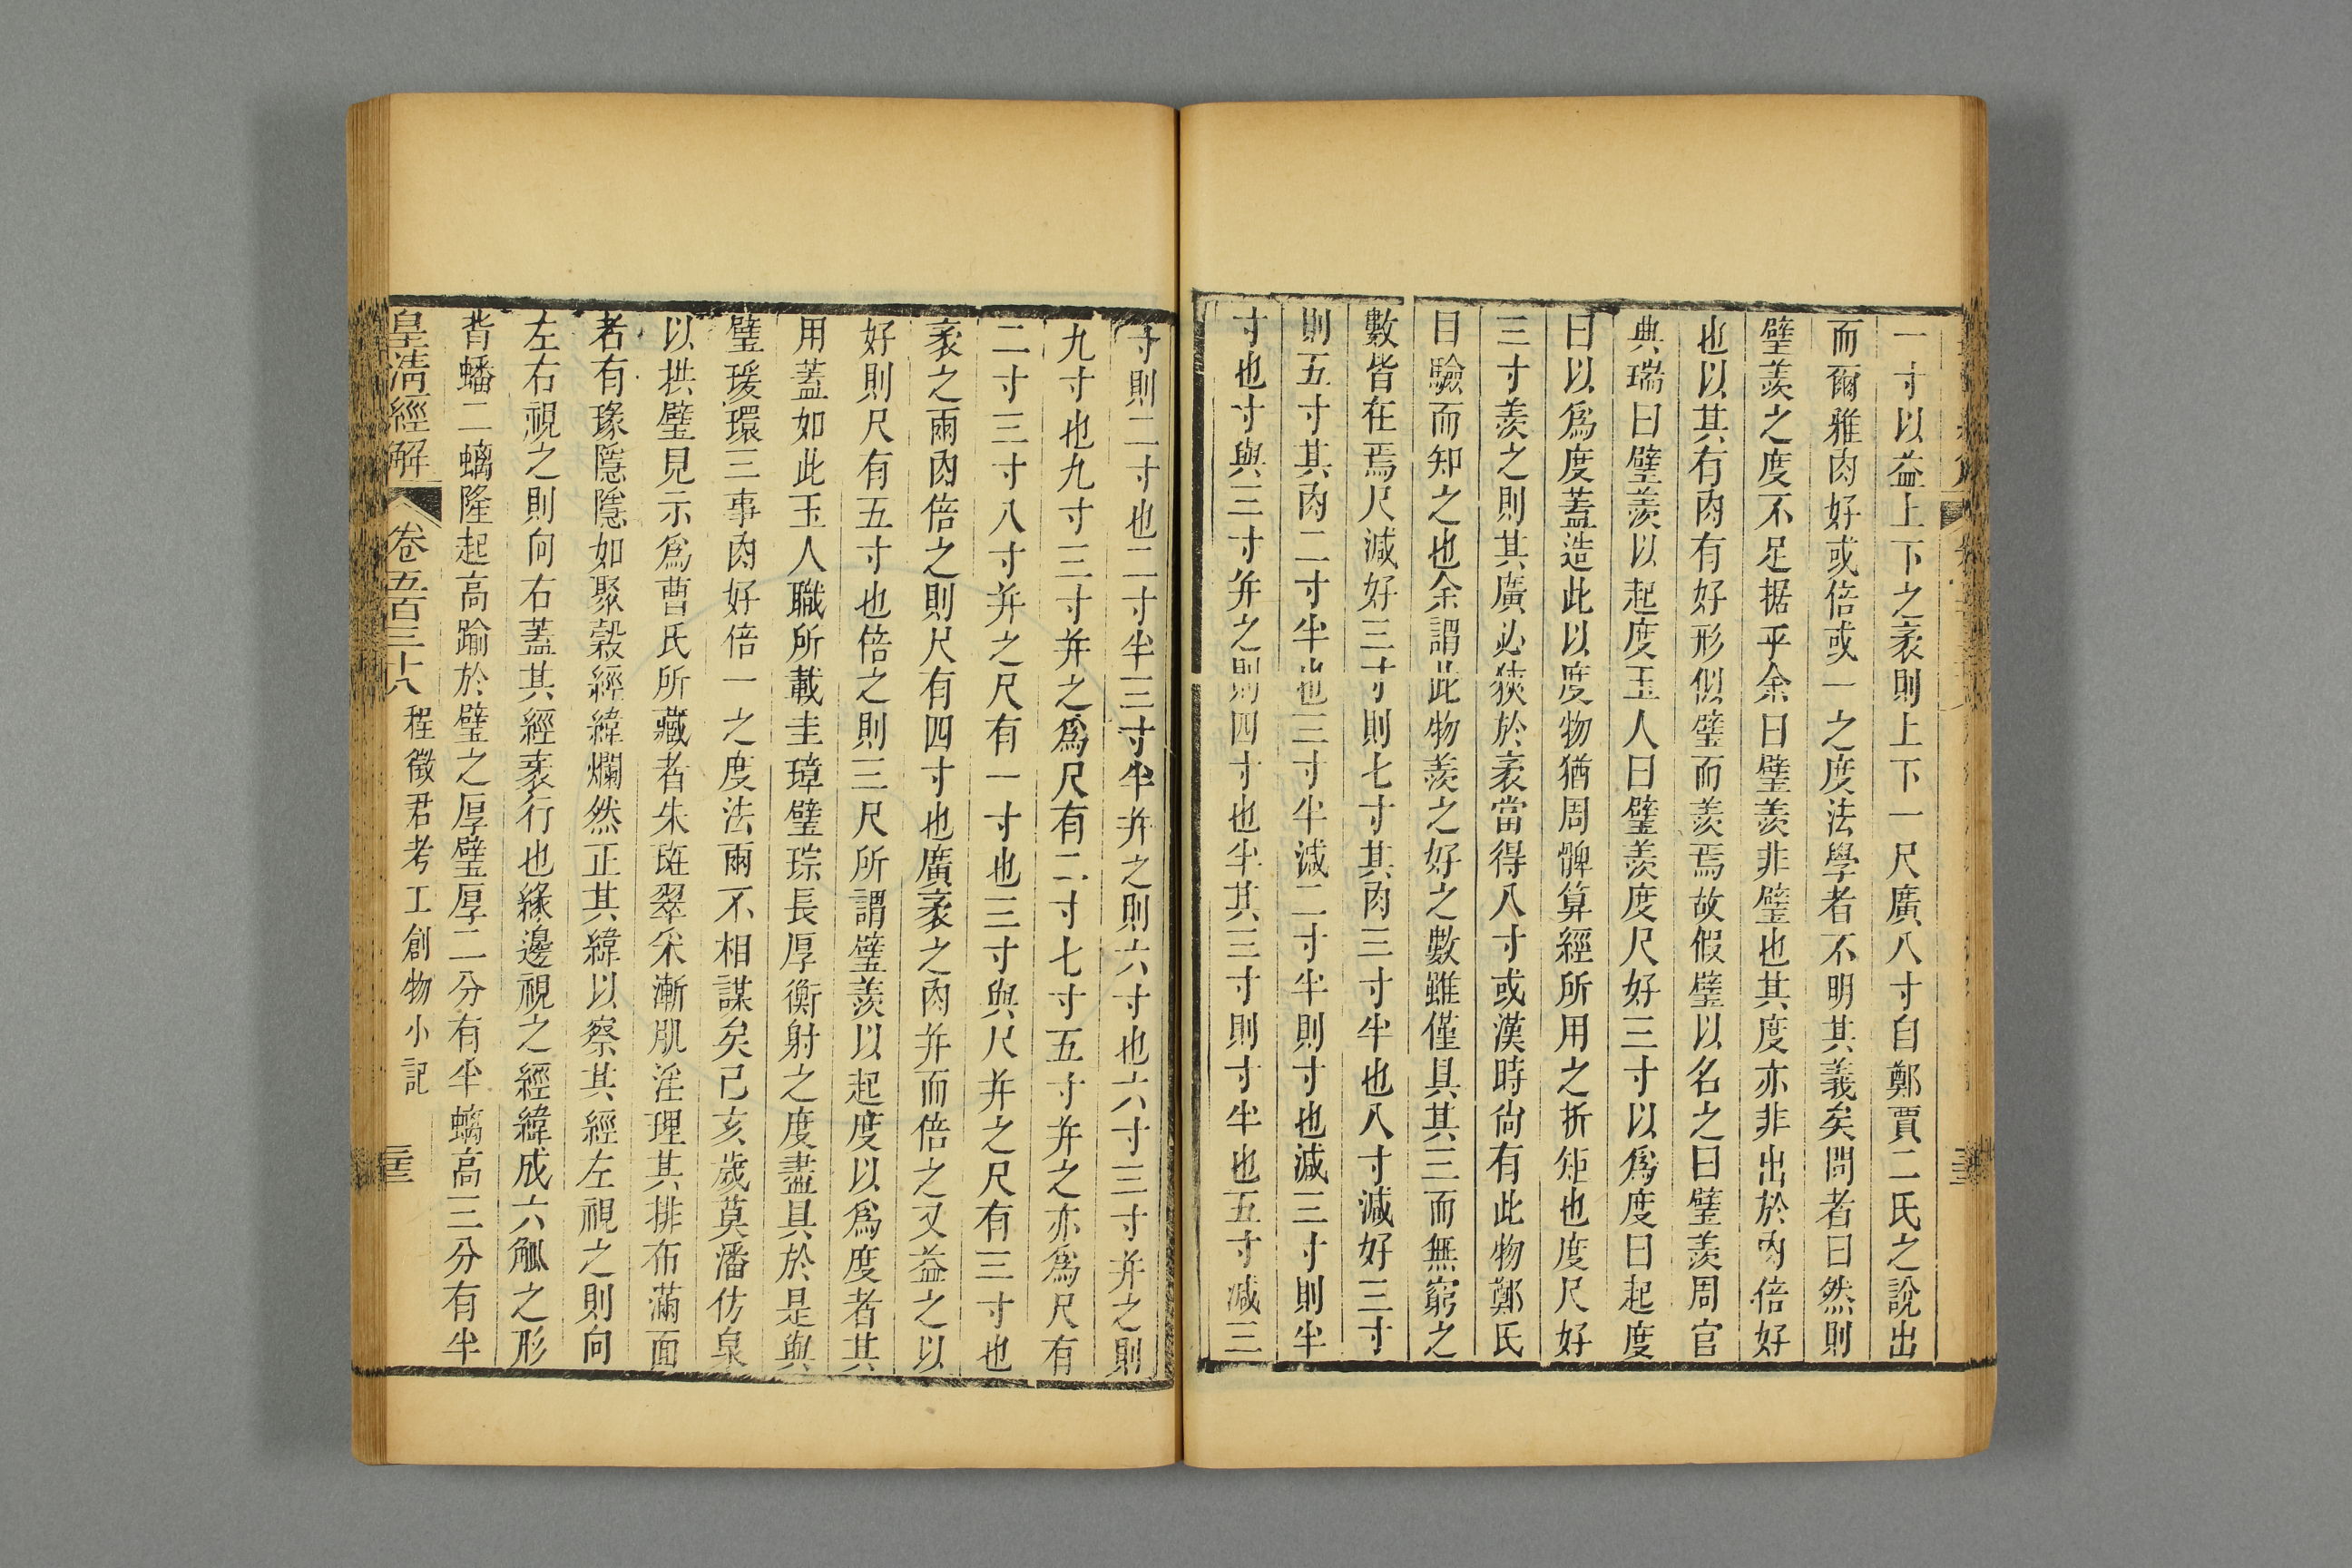 一寸以益上下之袤則上下一尺廣八寸自鄭賈二氏之說出
而爾雅肉好或倍或一之度法學者不明其義矣問者曰然則
璧羨之度不足据乎余曰璧羨非璧也其度亦非出於肉倍好
也以其有肉有好形似璧而羨焉故假璧以名之曰璧羨周官
典瑞曰璧羨以起度玉人曰璧羨度尺好三寸以爲度曰起度
曰以爲度蓋造此以度物猶周髀算經所用之折矩也度尺好
三寸羨之則其廣必狹於袤當得八寸或漢時尙有此物鄭氏
目驗而知之也余謂此物羨之好之數雖僅具其三而無窮之
數皆在焉尺減好三寸則七寸其肉三寸半也八寸減好三寸
則五寸其肉二寸半也三寸半減二寸半則寸也減三寸則半
寸也寸與三寸并之則四寸也半其三寸則寸半也五寸減三
寸則二寸也二寸半三寸半并之則六寸也六寸三寸并之則
九寸也九寸三寸并之爲尺有二寸七寸五寸并之亦爲尺有
二寸三寸八寸并之尺有一寸也三寸與尺并之尺有三寸也
袤之兩肉倍之則尺有四寸也廣袤之肉并而倍之又益之以
好則尺有五寸也倍之則三尺所謂璧羨以起度以爲度者其
用蓋如此玉人職所載圭璋璧琮長厚衡射之度盡具於是與
璧瑗環三事肉好倍一之度法兩不相謀矣己亥歲莫潘仿泉
以拱璧見示爲曹氏所藏者朱斑翠采漸肌淫理其排布滿面
者有瑑隱隱如聚穀經緯爛然正其緯以察其經左視之則向
左右視之則向右蓋其經袤行也緣邊視之經緯成六觚之形
背蟠二螭隆起高踰於璧之厚璧厚二分有半螭高三分有半
皇淸經解 卷五百三十八 程徵君考工創物小記 三三